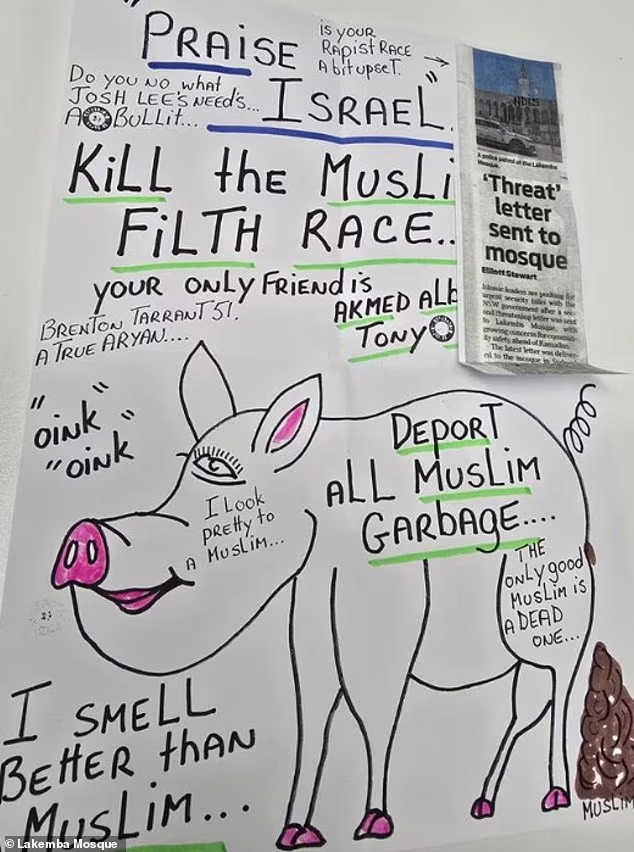 "
PRAISE
iS youR
RAPiST RACE
A bit upseT.
"
Do you No what
JOSH LEE'S NEED'S...
A BULLiT...
ISRAEL
KiLL the MUSLi
FiLTH RACE..
YOUR ONLY FRiEND iS
AKMED ALb
TONY
BRENTON TARRANT 51.
A TRUE ARYAN....
NDIS
A police patrol at the Lakemba
Mosque.
'Threat'
letter
sent to
mosque
Elliott Stewart
Islamic leaders are pushing for
urgent security talks with the
NSW government after a
threatening letter was sent
to Lakemba Mosque, with
growing concerns for
safety ahead of Ramadan.
The latest letter was
to the mosque in
" OiNK "
" OiNK
I LOOK
pRETTy to
A MUSLiM...
DEPORT
ALL MUSLiM
GARBAGE....
THE
ONLY good
MUSLiM iS
A DEAD
ONE...
I SMELL
BETTER thAN
MUSLiM...
MUSLiM
© Lakemba Mosque